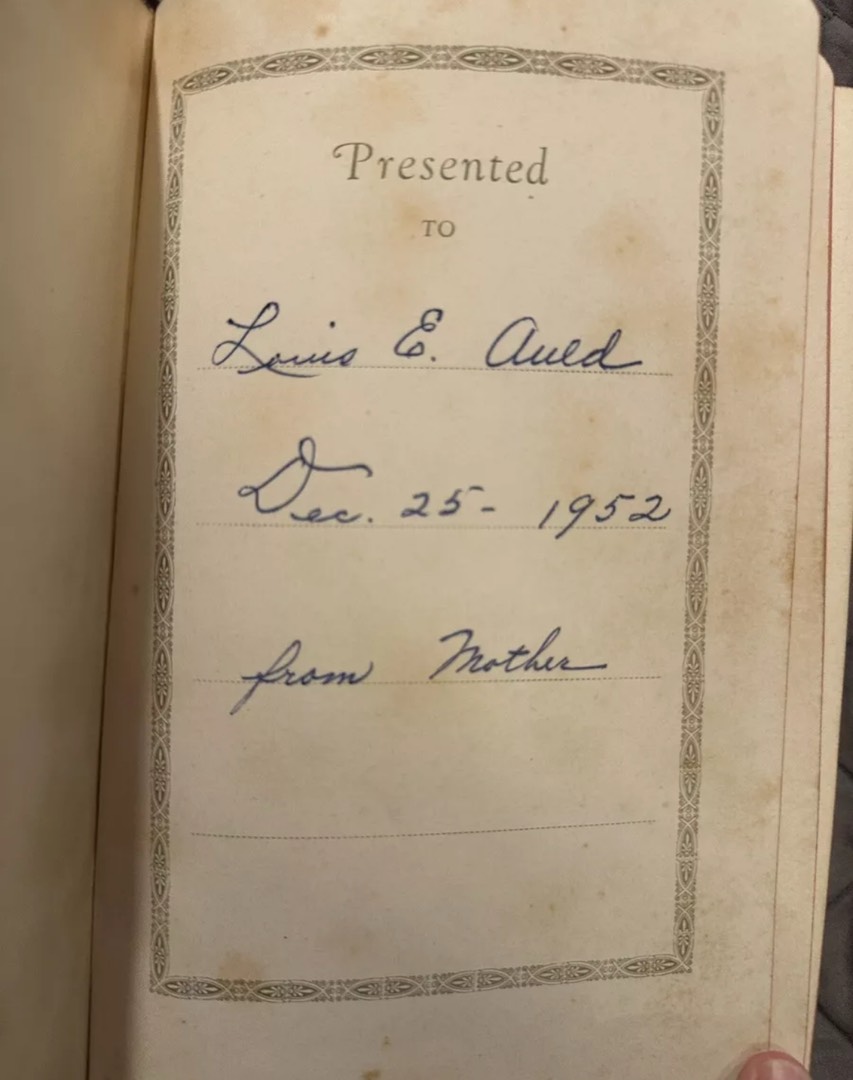 Presented
TO
Louis E. Auld
Dec. 25- 1952
from Mother